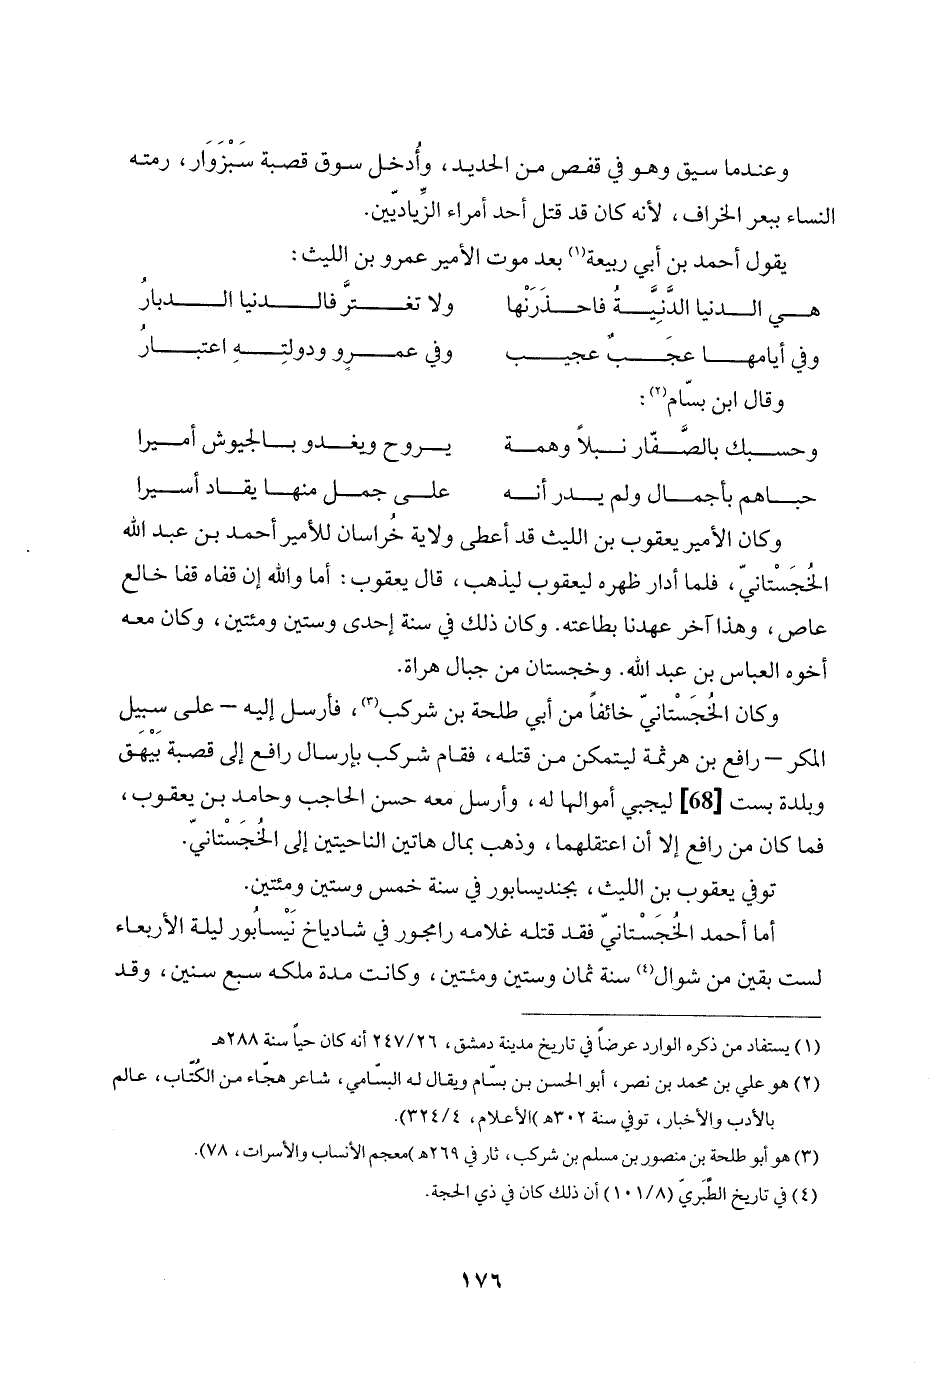 وعندما سيق وهو في قفص من الحديد، وأُدخل سوق قصبة سَبْزَوَار، رمته
النساء ببعر الخراف، لأنه كان قد قتل أحد أمراء الزِّياديّين.
يقول أحمد بن أبي ربيعة(١) بعد موت الأمير عمرو بن الليث:
هـي الـدنيا الدَّنيَّـةُ فاحـذَرَنْها ولا تغـترَّ فالـدنيا الـدبارُ
وفي أيامهـا عجَـبٌ عجيـب وفي عمـرٍو ودولتِـهِ اعتبـارُ
وقال ابن بسّام(٢):
وحسـبك بالصَّـفّار نـبلاً وهمـة يـروح ويغـدو بـالجيوش أمـيرا
حبـاهم بأجمـال ولم يـدر أنـه علـى جمـل منهـا يقـاد أسـيرا
وكان الأمير يعقوب بن الليث قد أعطى ولاية خُراسان للأمير أحمد بن عبد الله
الخُجَسْتانيّ، فلما أدار ظهره ليعقوب ليذهب، قال يعقوب: أما والله إن قفاه قفا خالع
عاص، وهذا آخر عهدنا بطاعته. وكان ذلك في سنة إحدى وستين ومئتين، وكان معه
أخوه العباس بن عبد الله. وخجستان من جبال هراة.
وكان الخُجَسْتانيّ خائفاً من أبي طلحة بن شركب(٣)، فأرسل إليه – على سبيل
المكر – رافع بن هرثمة ليتمكن من قتله، فقام شركب بإرسال رافع إلى قصبة بَيْهَق
وبلدة بست [68] ليجبي أموالها له، وأرسل معه حسن الحاجب وحامد بن يعقوب،
فما كان من رافع إلا أن اعتقلهما، وذهب بمال هاتين الناحيتين إلى الخُجَسْتانيّ.
توفي يعقوب بن الليث، بجنديسابور في سنة خمس وستين ومئتين.
أما أحمد الخُجَسْتانيّ فقد قتله غلامه رامجور في شادياخ نَيْسابُور ليلة الأربعاء
لست بقين من شوال(٤) سنة ثمان وستين ومئتين، وكانت مدة ملكه سبع سنين، وقد
(١) يستفاد من ذكره الوارد عرضاً في تاريخ مدينة دمشق، ٢٤٧/٢٦ أنه كان حياً سنة ٢٨٨هـ
(٢) هو علي بن محمد بن نصر، أبو الحسن بن بسّام ويقال له البسّامي، شاعر هجّاء من الكُتّاب، عالم
بالأدب والأخبار، توفي سنة ٣٠٢هـ )الأعلام، ٣٢٤/٤).
(٣) هو أبو طلحة بن منصور بن مسلم بن شركب، ثار في ٢٦٩هـ )معجم الأنساب والأسرات، ٧٨).
(٤) في تاريخ الطَّبَريّ (١٠١/٨) أن ذلك كان في ذي الحجة.
١٧٦